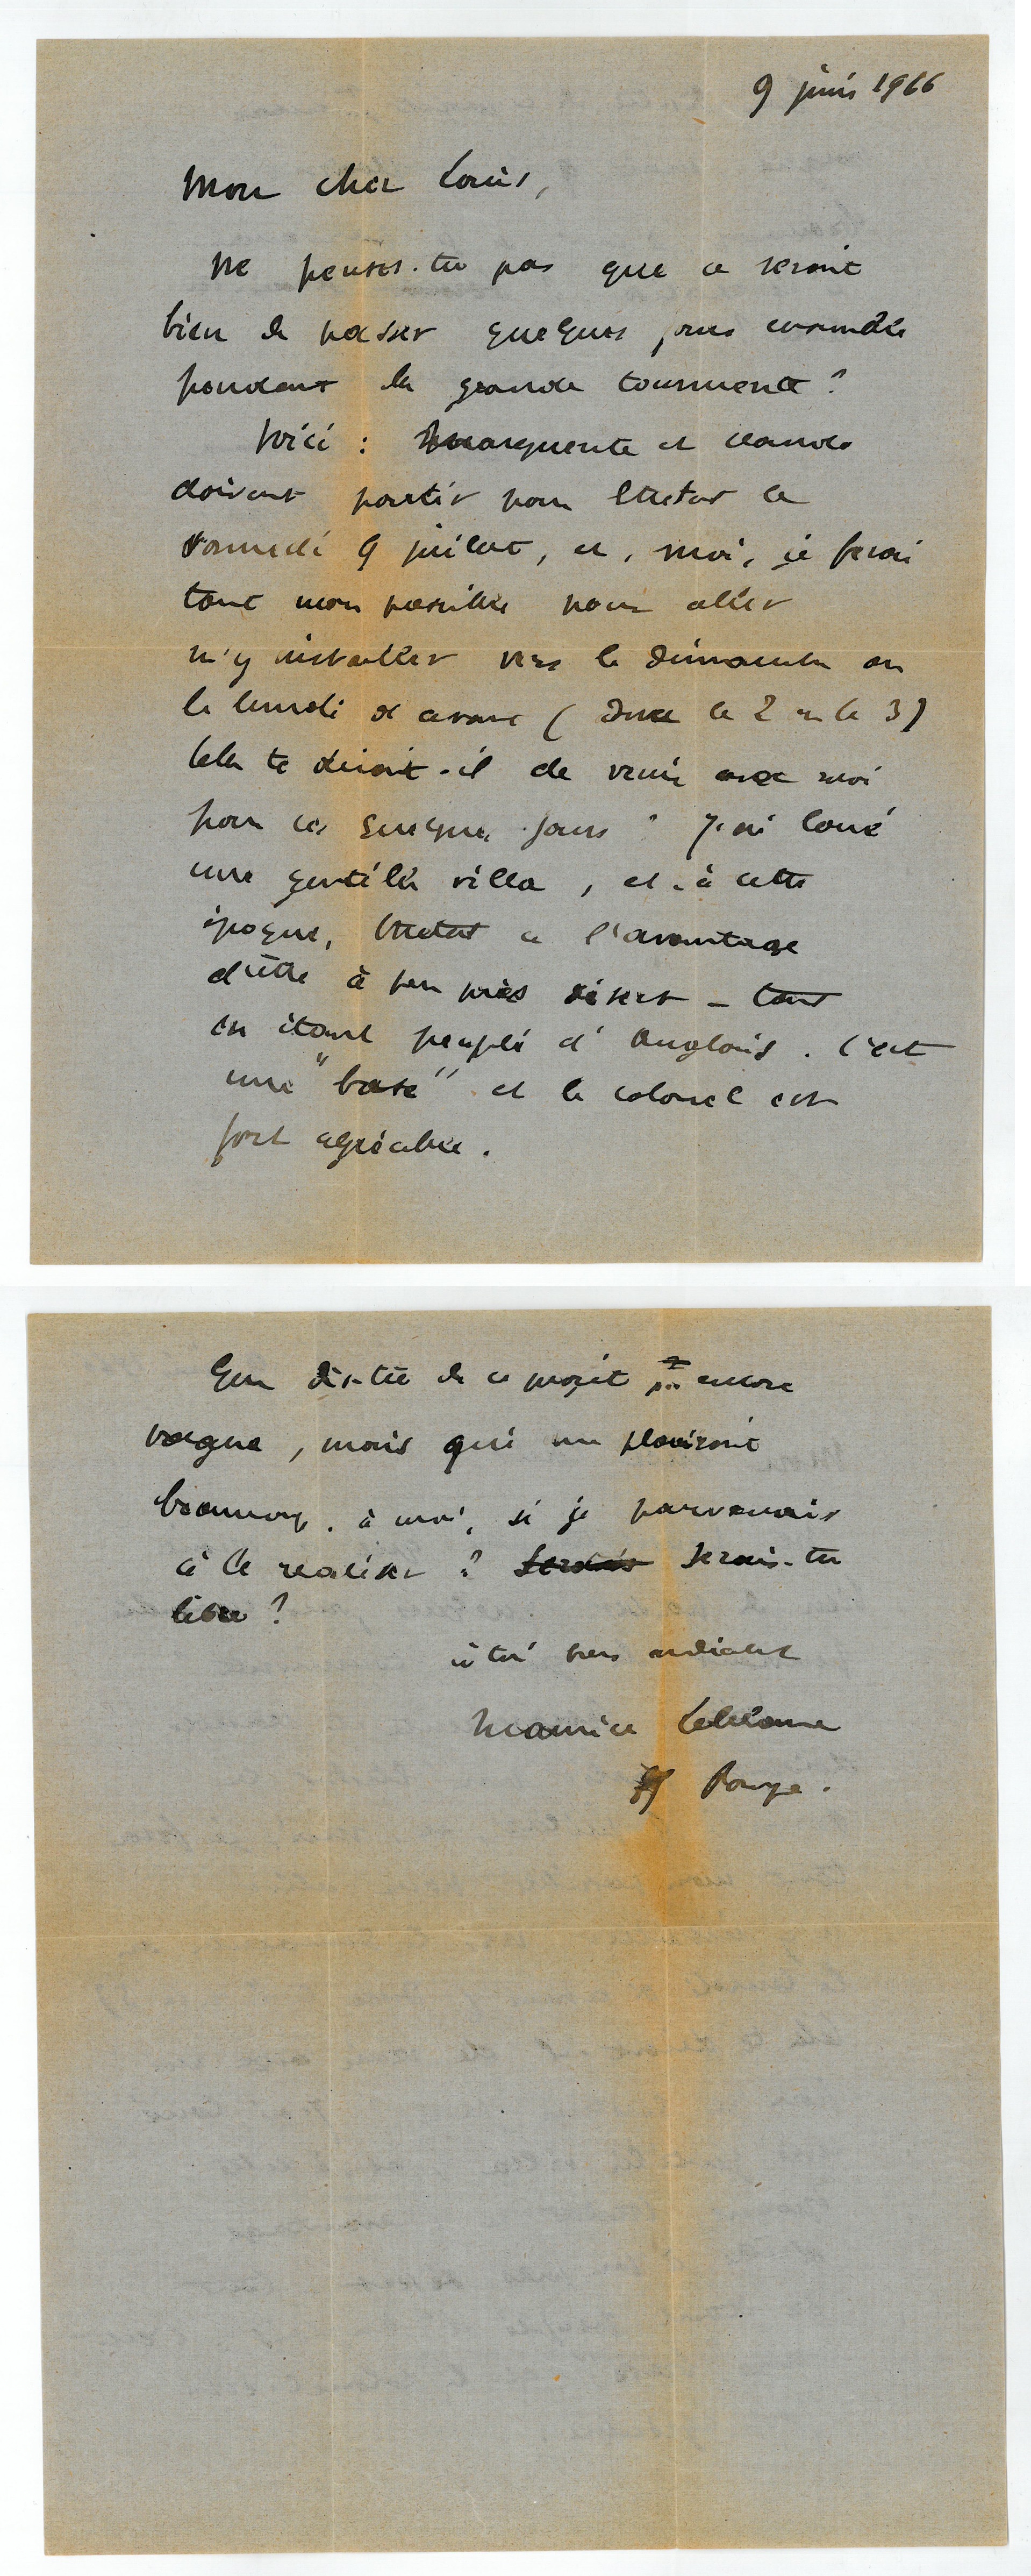 9 juin 1916
Mon cher Louis,
Ne penses-tu pas que ce serait
bien de passer quelques jours ensemble
pendant la grande tourmente ?
Voici : Marguerite et Claude
doivent partir pour Etretat le
samedi 9 juillet, et, moi, je ferai
tout mon possible pour aller
m'y installer vers le dimanche ou
le lundi d'avant ( donc le 2 ou le 3)
Cela te dirait-il de venir avec moi
pour ces quelques jours ? J'ai loué
une gentille villa, et, à cette
époque, Etretat a l'avantage
d'être à peu près désert – tout
en étant peuplé d'Anglais. C'est
une "base" et le colonel est
fort agréable.
Que dis-tu de ce projet encore
vague, mais qui me plairait
beaucoup, à moi, si je parvenais
à le réaliser ? Serais Serais-tu
libre ?
à toi bien cordialement
Maurice Leblanc